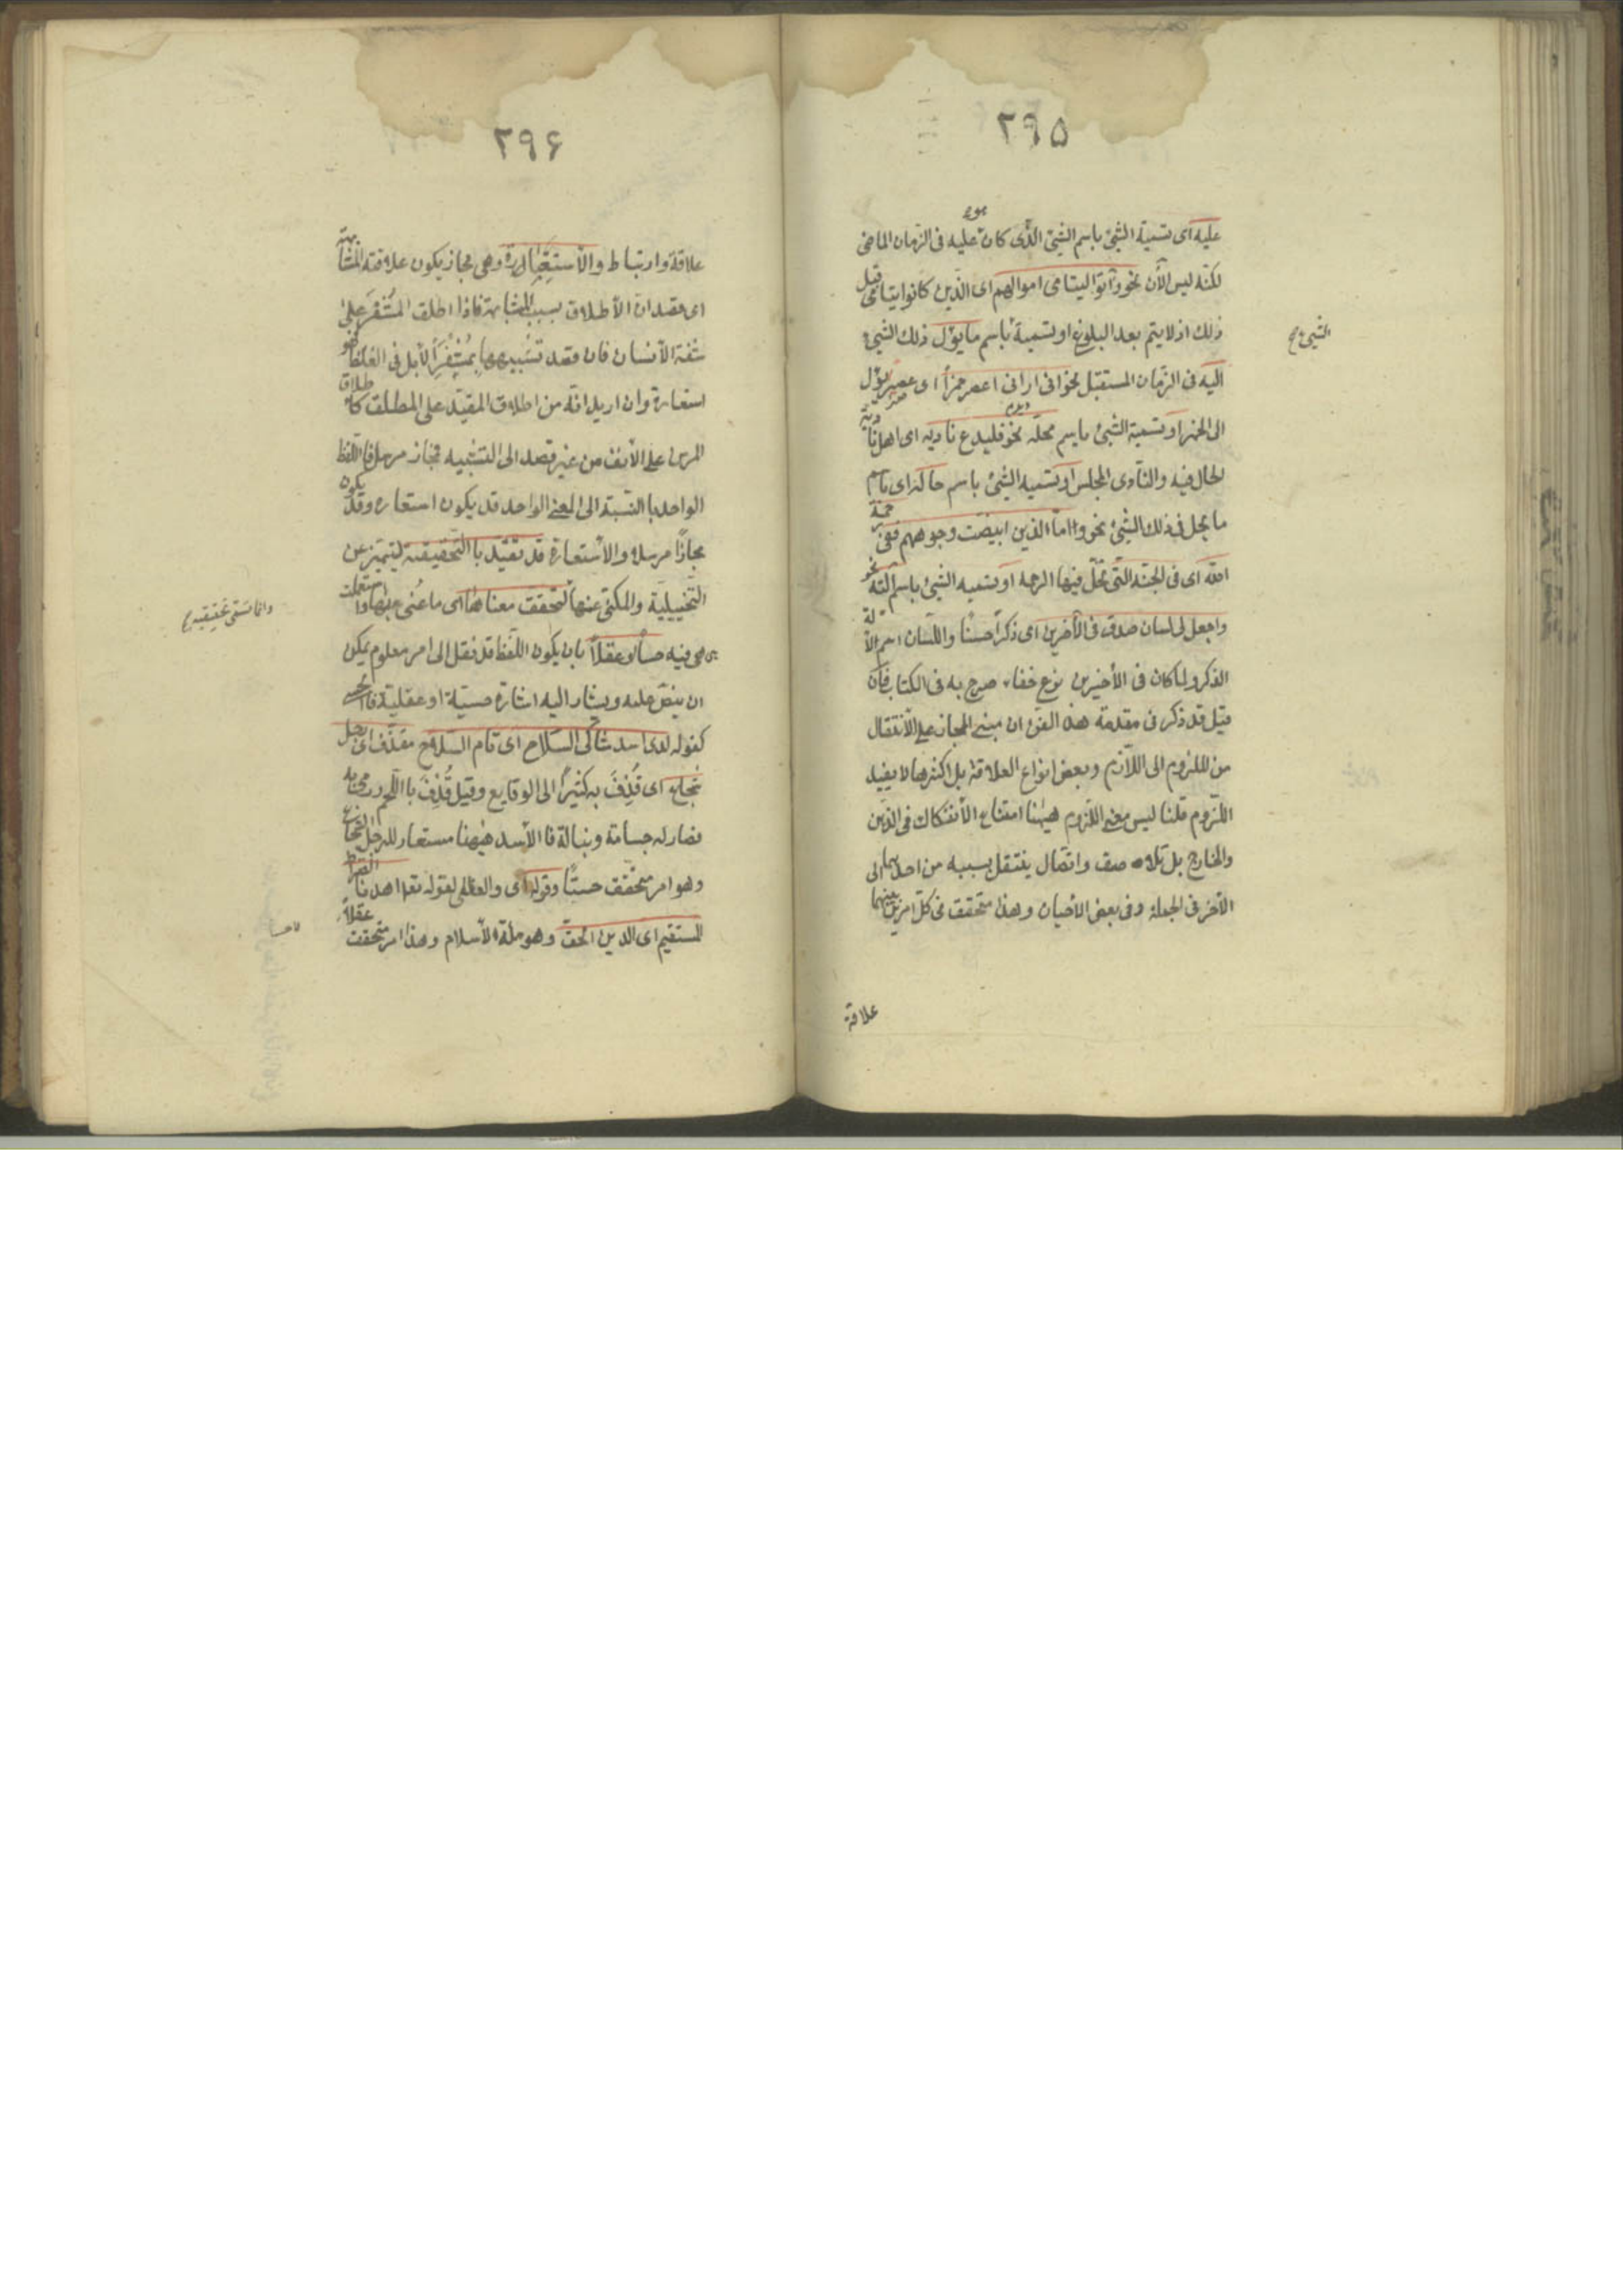 ٢٩٥
عليه اى تسمية الشئ باسم الشئ الذى كان عليه فى الزمان الماضى
لكنه ليس الآن نحو وآتوا اليتامى اموالهم اى الذين كانوا يتامى قبل
ذلك اذ لا يتم بعد البلوغ او تسمية باسم ما يؤل ذلك الشئ
اليه فى الزمان المستقبل نحو انى ارانى اعصر خمراً اى عصير يؤل
الى الخمر او تسمية الشئ باسم محله نحو فليدع ناديه اى اهل ناديه
لحال فيه والنادى المجلس او تسميه الشئ باسم حاله اى باسم
ما يحل فى ذلك الشئ نحو واما الذين ابيضت وجوههم ففى رحمة
الله اى فى الجنة التى تحل فيها الرحمة او تسميه الشئ باسم آلته نحو
واجعل لى لسان صدق فى الآخرين اى ذكراً حسناً واللسان اسم لآلة
الذكر ولما كان فى الأخيرين نوع خفاء صرح به فى الكتاب فان
قيل قد ذكر فى مقدمة هذا الفن ان مبنى المجاز على الانتقال
من الملزوم الى اللازم وبعض انواع العلاقة بل اكثرها لا يفيد
اللزوم قلنا ليس معنى اللزوم هيهنا امتناع الأنفكاك فى الذهن
والخارج بل تلاصق واتصال ينتقل بسببه من احدهما الى
الآخر فى الجملة وفى بعض الأحيان وهذا متحقق فى كل امرين بينهما
علاقة
الشئ
٢٩۶
علاقة وارتباط والأستعارة وهى مجاز يكون علاقته المشابهة
اى قصد ان الأطلاق بسبب المشابهة فاذا اطلق المشفر على
شفة الأنسان فان قصد تشبيهها بمشفر الأبل فى الغلظ فهو
استعارة وان اريد انه من اطلاق المقيد على المطلق كاطلاق
المرسن على الأنف من غير قصد الى التشبيه فمجاز مرسل فاللفظ
الواحد بالنسبة الى المعنى الواحد قد يكون استعاره وقد يكون
مجازاً مرسلا والأستعارة قد تقيد باالتحقيقية ليتميز عن
التخييلية والمكنى عنها لتحقق معناها اى ما عنى بها واستعملت
هى فيه حساً او عقلاً بان يكون اللفظ قد نقل الى امر معلوم يمكن
ان ينص عليه ويشار اليه اشارة حسية او عقلية فالحسى
كقوله لدى اسد شاكى السلاح اى تام السلاح مقذف اى رجل
شجاع اى قُذِفَ به كثيراً الى الوقايع وقيل قُذِفَ باللحم ورمى به
فصار له جسامة ونبالة فا الأسد هيهنا مستعار للرجل الشجاع
وهو امر متحقق حسياً وقوله اى والعقلى لقوله تعا اهدنا الصراط
المستقيم اى الدين الحق وهو ملة الأسلام وهذا امر متحقق عقلاً
وانما سمى تحقيقيه